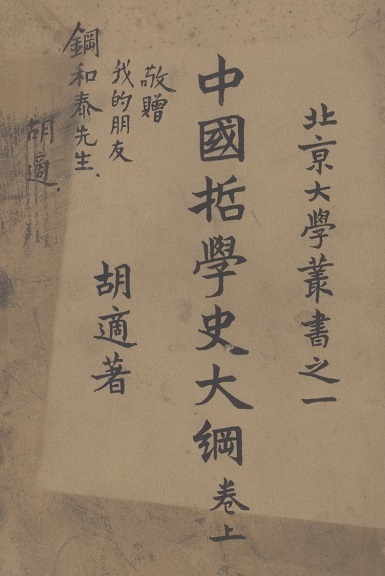 北京大學叢書之一
中國哲學史大綱 卷上
胡適著
敬贈
我的朋友
鋼和泰先生、
胡適.